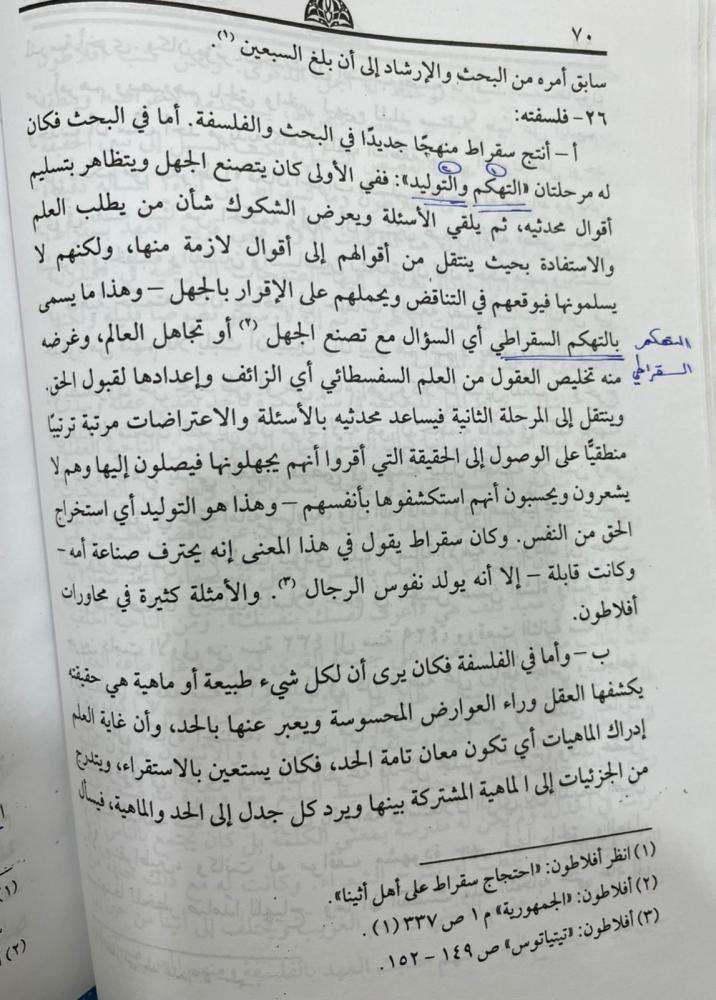 ٧٠
سابق أمره من البحث والإرشاد إلى أن بلغ السبعين (١).
٢٦- فلسفته:
أ - أنتج سقراط منهجًا جديدًا في البحث والفلسفة. أما في البحث فكان
له مرحلتان «التهكم والتوليد»: ففي الأولى كان يتصنع الجهل ويتظاهر بتسليم
أقوال محدثيه، ثم يلقي الأسئلة ويعرض الشكوك شأن من يطلب العلم
والاستفادة بحيث ينتقل من أقوالهم إلى أقوال لازمة منها، ولكنهم لا
يسلمونها فيوقعهم في التناقض ويحملهم على الإقرار بالجهل – وهذا ما يسمى
بالتهكم السقراطي أي السؤال مع تصنع الجهل (٢) أو تجاهل العالم، وغرضه
التهكم
السقراطي
منه تخليص العقول من العلم السفسطائي أي الزائف وإعدادها لقبول الحق.
وينتقل إلى المرحلة الثانية فيساعد محدثيه بالأسئلة والاعتراضات مرتبة ترتيبًا
منطقيًّا على الوصول إلى الحقيقة التي أقروا أنهم يجهلونها فيصلون إليها وهم لا
يشعرون ويحسبون أنهم استكشفوها بأنفسهم – وهذا هو التوليد أي استخراج
الحق من النفس. وكان سقراط يقول في هذا المعنى إنه يحترف صناعة أمه -
وكانت قابلة – إلا أنه يولد نفوس الرجال (٣). والأمثلة كثيرة في محاورات
أفلاطون.
ب - وأما في الفلسفة فكان يرى أن لكل شيء طبيعة أو ماهية هي حقيقته
يكشفها العقل وراء العوارض المحسوسة ويعبر عنها بالحد، وأن غاية العلم
إدراك الماهيات أي تكون معان تامة الحد، فكان يستعين بالاستقراء، ويتدرج
من الجزئيات إلى الماهية المشتركة بينها ويرد كل جدل إلى الحد والماهية، فيسأل
(١) انظر أفلاطون: «احتجاج سقراط على أهل أثينا».
(٢) أفلاطون: «الجمهورية» م ١ ص ٣٣٧ (١).
(٣) أفلاطون: «تيتياتوس» ص ١٤٩ - ١٥٢.